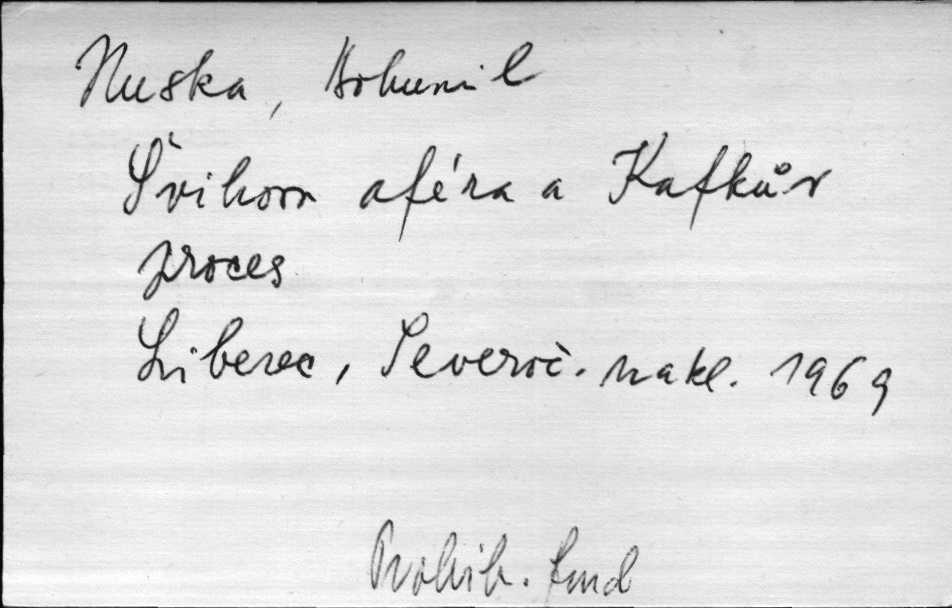 Nuska, Bohumil
Švihova aféra a Kafkův
proces
Liberec, Severoč. nakl. 1969
Prohib. fond